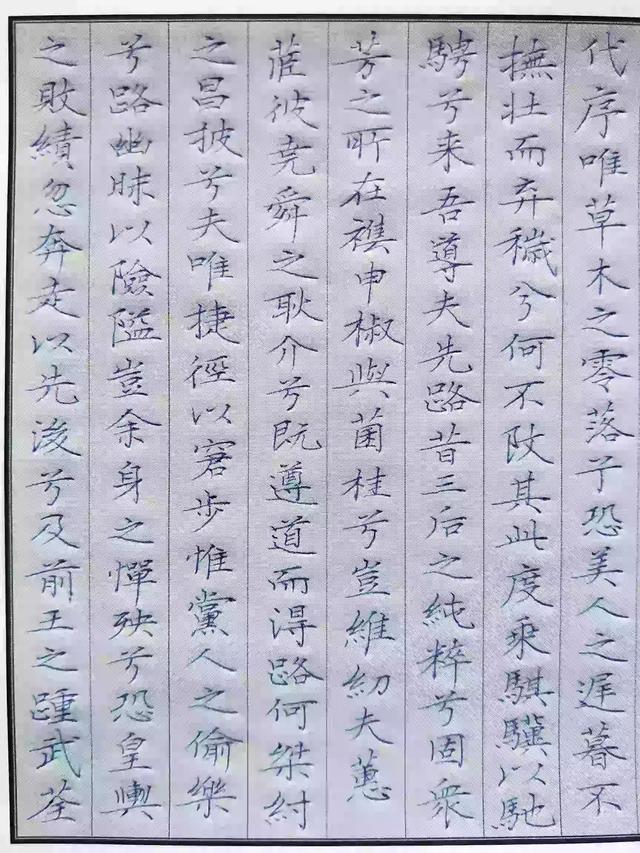 代序唯草木之零落兮恐美人之遲暮不
撫壯而弃穢兮何不改其此度乘騏驥以馳
騁兮来吾導夫先路昔三后之純粹兮固衆
芳之所在襍申椒與菌桂兮豈維紉夫蕙
茝彼堯舜之耿介兮既遵道而得路何桀紂
之昌披兮夫唯捷徑以窘步惟黨人之偷樂
兮路幽昧以險隘豈余身之憚殃兮恐皇輿
之敗績忽奔走以先後兮及前王之踵武荃